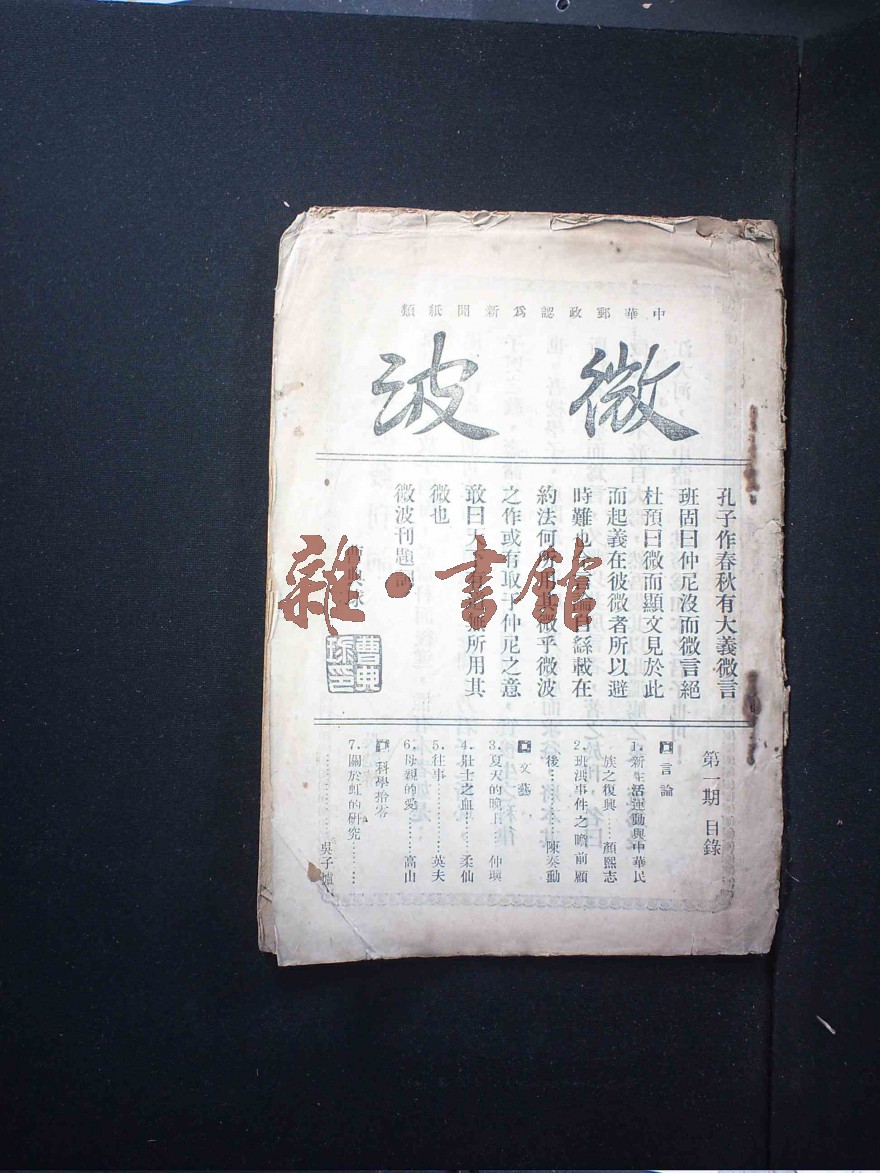 中華郵政認爲新聞紙類
微波
孔子作春秋有大義微言
班固曰仲尼沒而微言絕
杜預曰微而顯文見於此
而起義在彼微者所以避
時難也今言論自繇載在
約法何所用其微乎微波
之作或有取于仲尼之意
敢曰天下有道無所用其
微也
微波刊題詞
曹典球
曹典球印
第一期 目錄
言論
1. 新生活運動與中華民
族之復興……顏熙志
2. 班洪事件之瞻前顧
後……陳奏勳
文藝
3. 夏天的晚上…仲璵
4. 壯士之血…柔仙
5. 往事………英夫
6. 母親的愛……高山
科學拾零
7. 關於虹的研究……
吳子爐
雜·書館